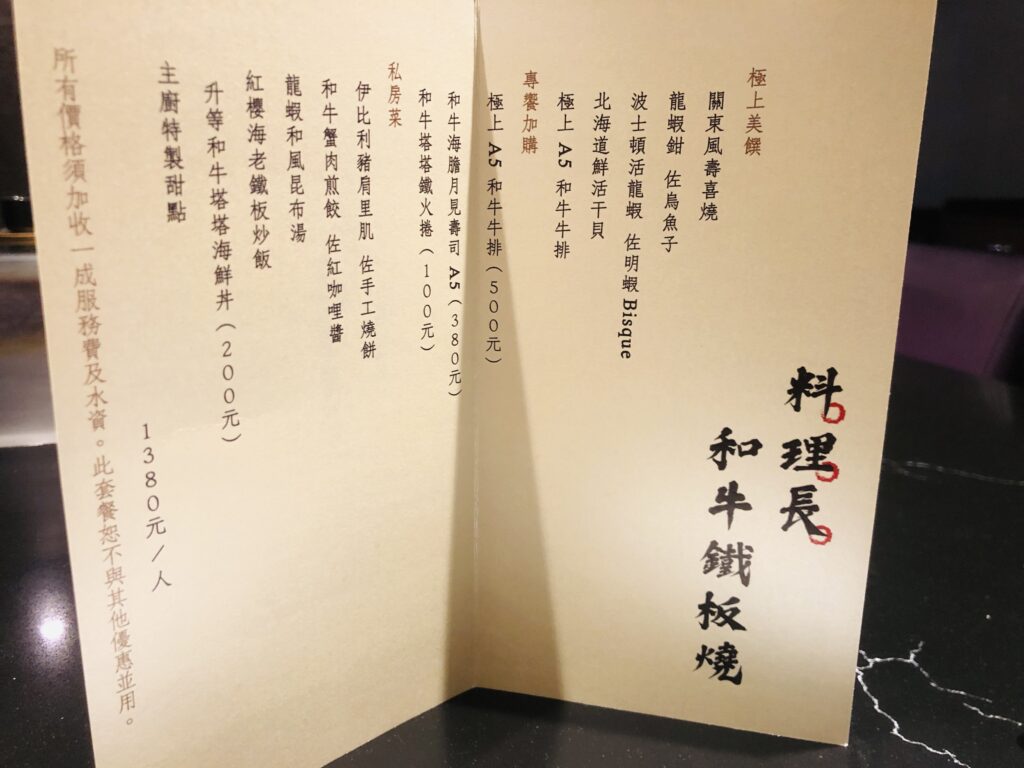 料理長
和牛鐵板燒
極上美饌
關東風壽喜燒
龍蝦鉗 佐烏魚子
波士頓活龍蝦 佐明蝦 Bisque
北海道鮮活干貝
極上 A5 和牛牛排
專饗加購
極上 A5 和牛牛排(500元)
和牛海膽月見壽司 A5(380元)
和牛塔塔鐵火捲(100元)
私房菜
伊比利豬肩里肌 佐手工燒餅
和牛蟹肉煎餃 佐紅咖哩醬
龍蝦和風昆布湯
紅櫻海老鐵板炒飯
升等和牛塔塔海鮮丼(200元)
主廚特製甜點
1380元/人
所有價格須加收一成服務費及水資。此套餐恕不與其他優惠並用。